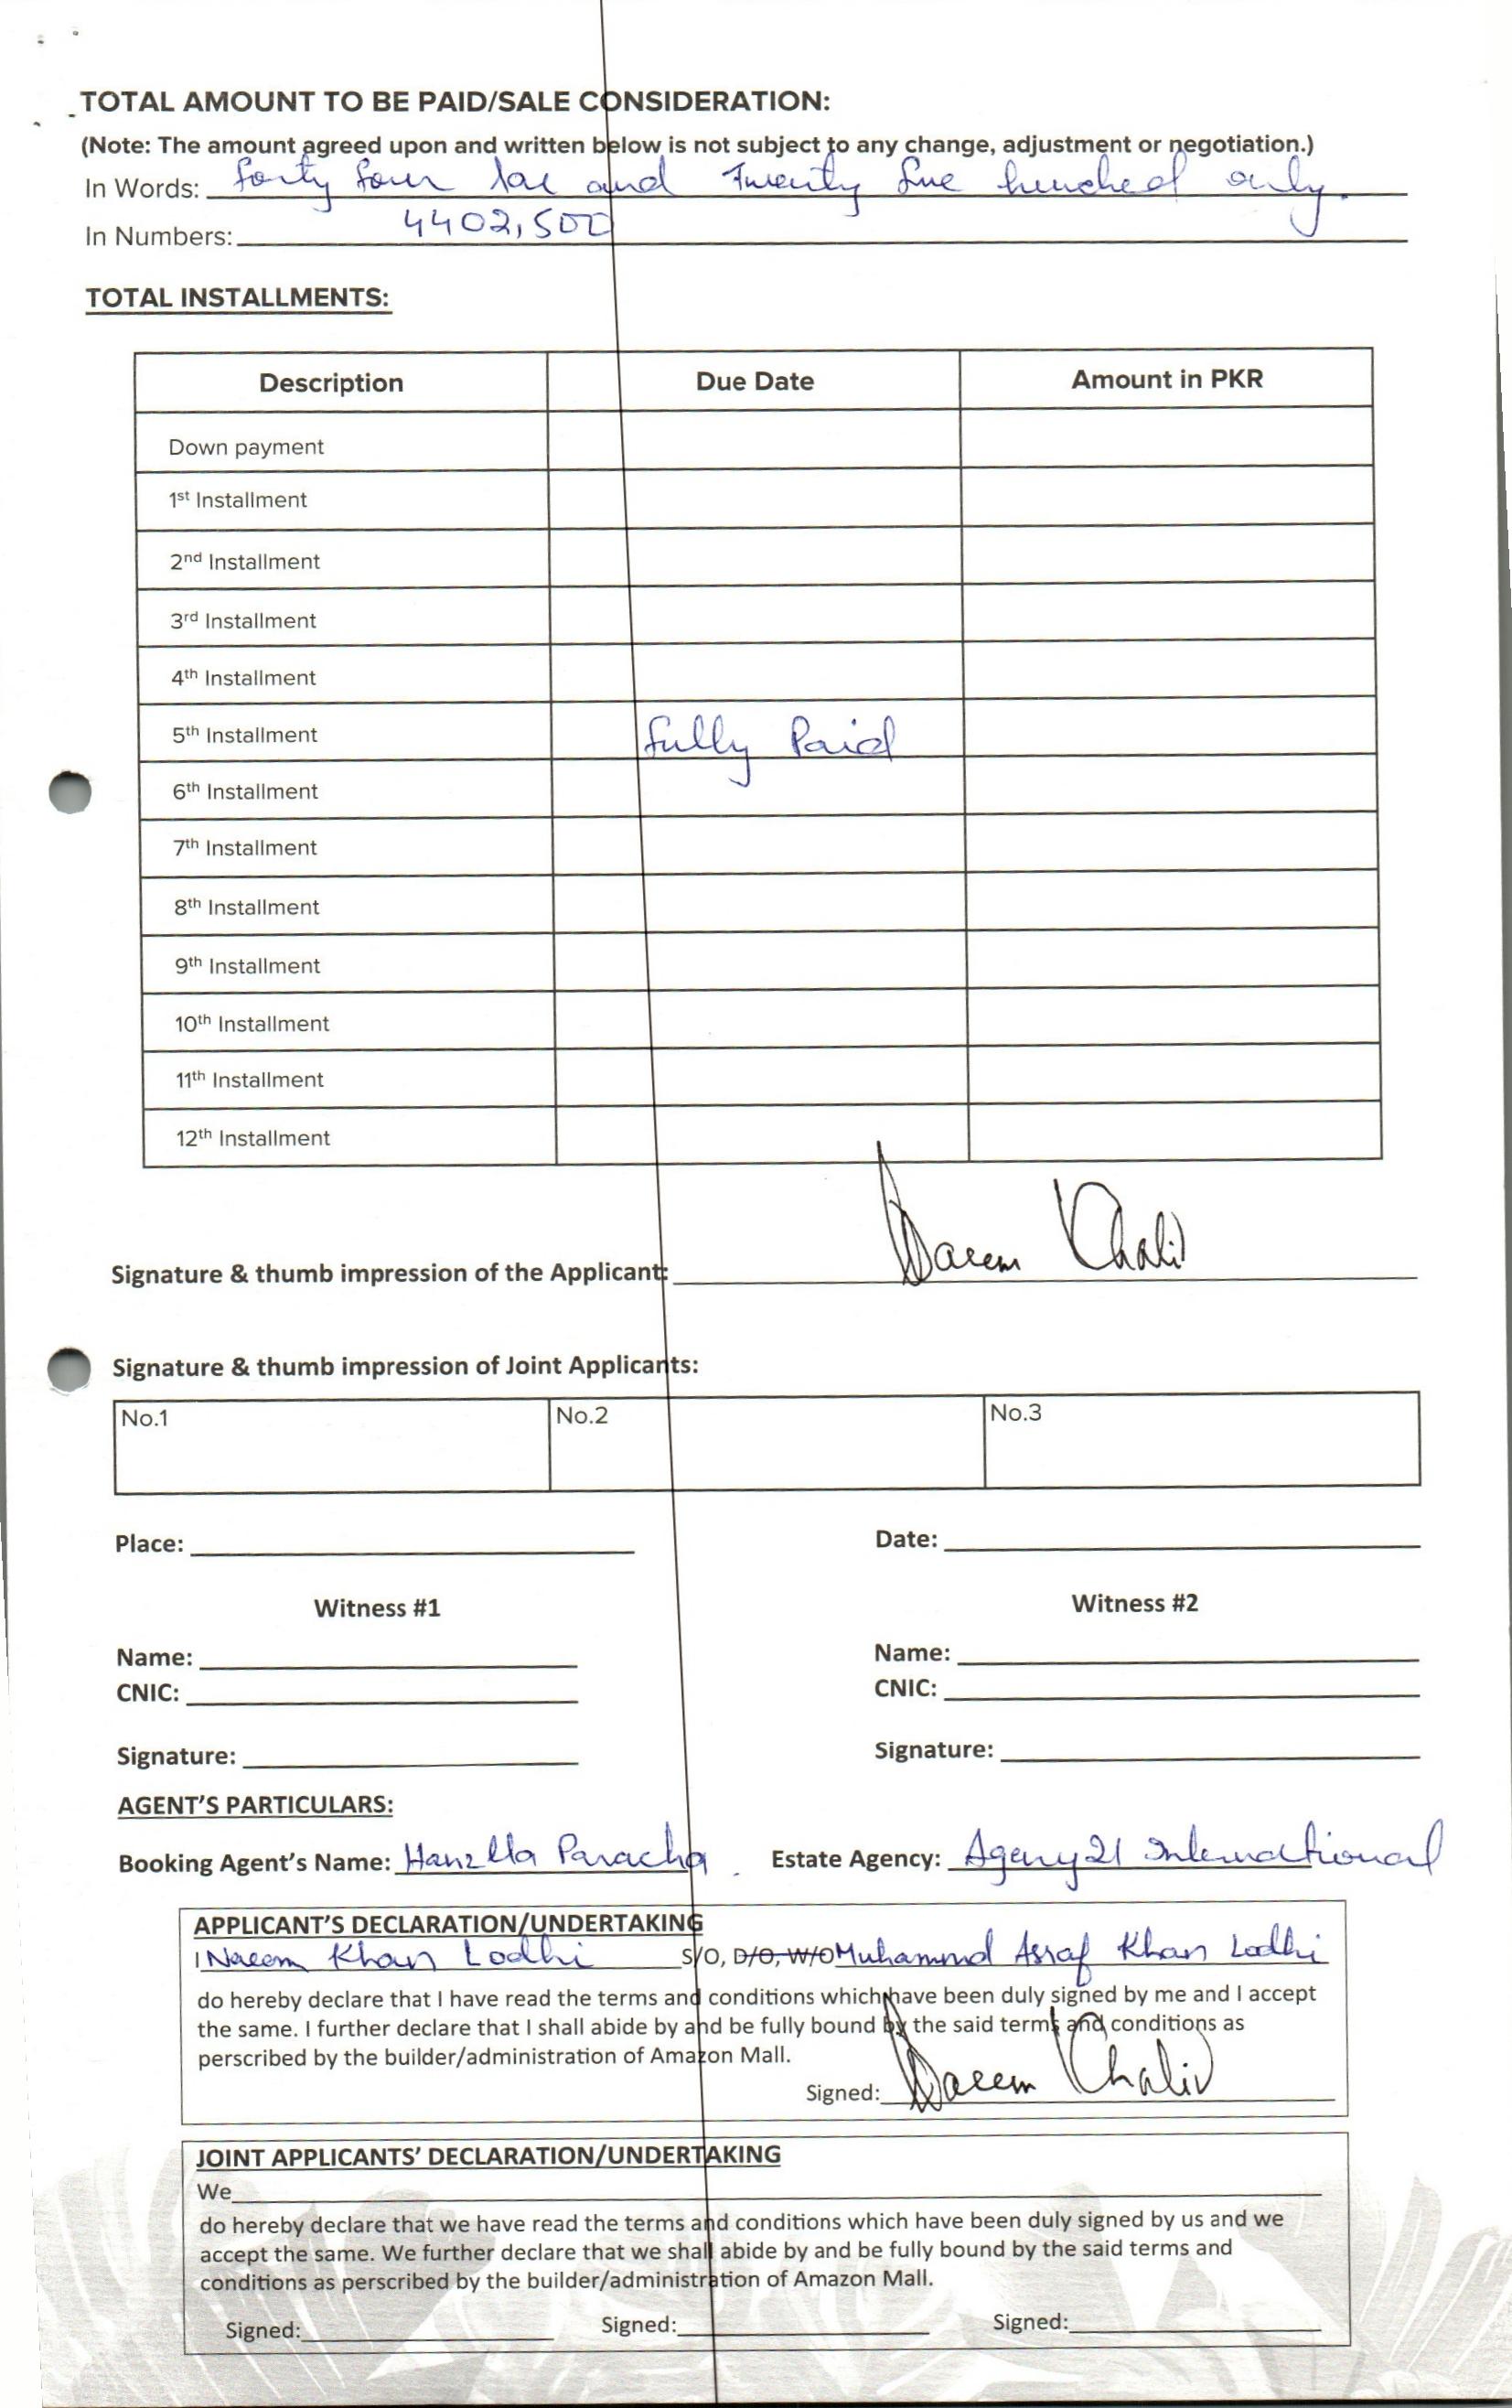 TOTAL AMOUNT TO BE PAID/SALE CONSIDERATION:
(Note: The amount agreed upon and written below is not subject to any change, adjustment or negotiation.)
In Words: forty four lac and Twenty five hundred only.
In Numbers: 4402,500
TOTAL INSTALLMENTS:
Description Due Date Amount in PKR
Down payment
1st Installment
2nd Installment
3rd Installment
4th Installment
5th Installment fully Paid
6th Installment
7th Installment
8th Installment
9th Installment
10th Installment
11th Installment
12th Installment
Signature & thumb impression of the Applicant: Naeem Khalid
Signature & thumb impression of Joint Applicants:
No.1 No.2 No.3
Place: Date:
Witness #1 Witness #2
Name: Name:
CNIC: CNIC:
Signature: Signature:
AGENT'S PARTICULARS:
Booking Agent's Name: Hanzlla Paracha. Estate Agency: Agency21 International
APPLICANT'S DECLARATION/UNDERTAKING
I Naeem Khan Lodhi S/O, D/O, W/O Muhammad Asraf Khan Lodhi
do hereby declare that I have read the terms and conditions which have been duly signed by me and I accept
the same. I further declare that I shall abide by and be fully bound by the said terms and conditions as
perscribed by the builder/administration of Amazon Mall.
Signed: Naeem Khalid
JOINT APPLICANTS' DECLARATION/UNDERTAKING
We
do hereby declare that we have read the terms and conditions which have been duly signed by us and we
accept the same. We further declare that we shall abide by and be fully bound by the said terms and
conditions as perscribed by the builder/administration of Amazon Mall.
Signed: Signed: Signed: